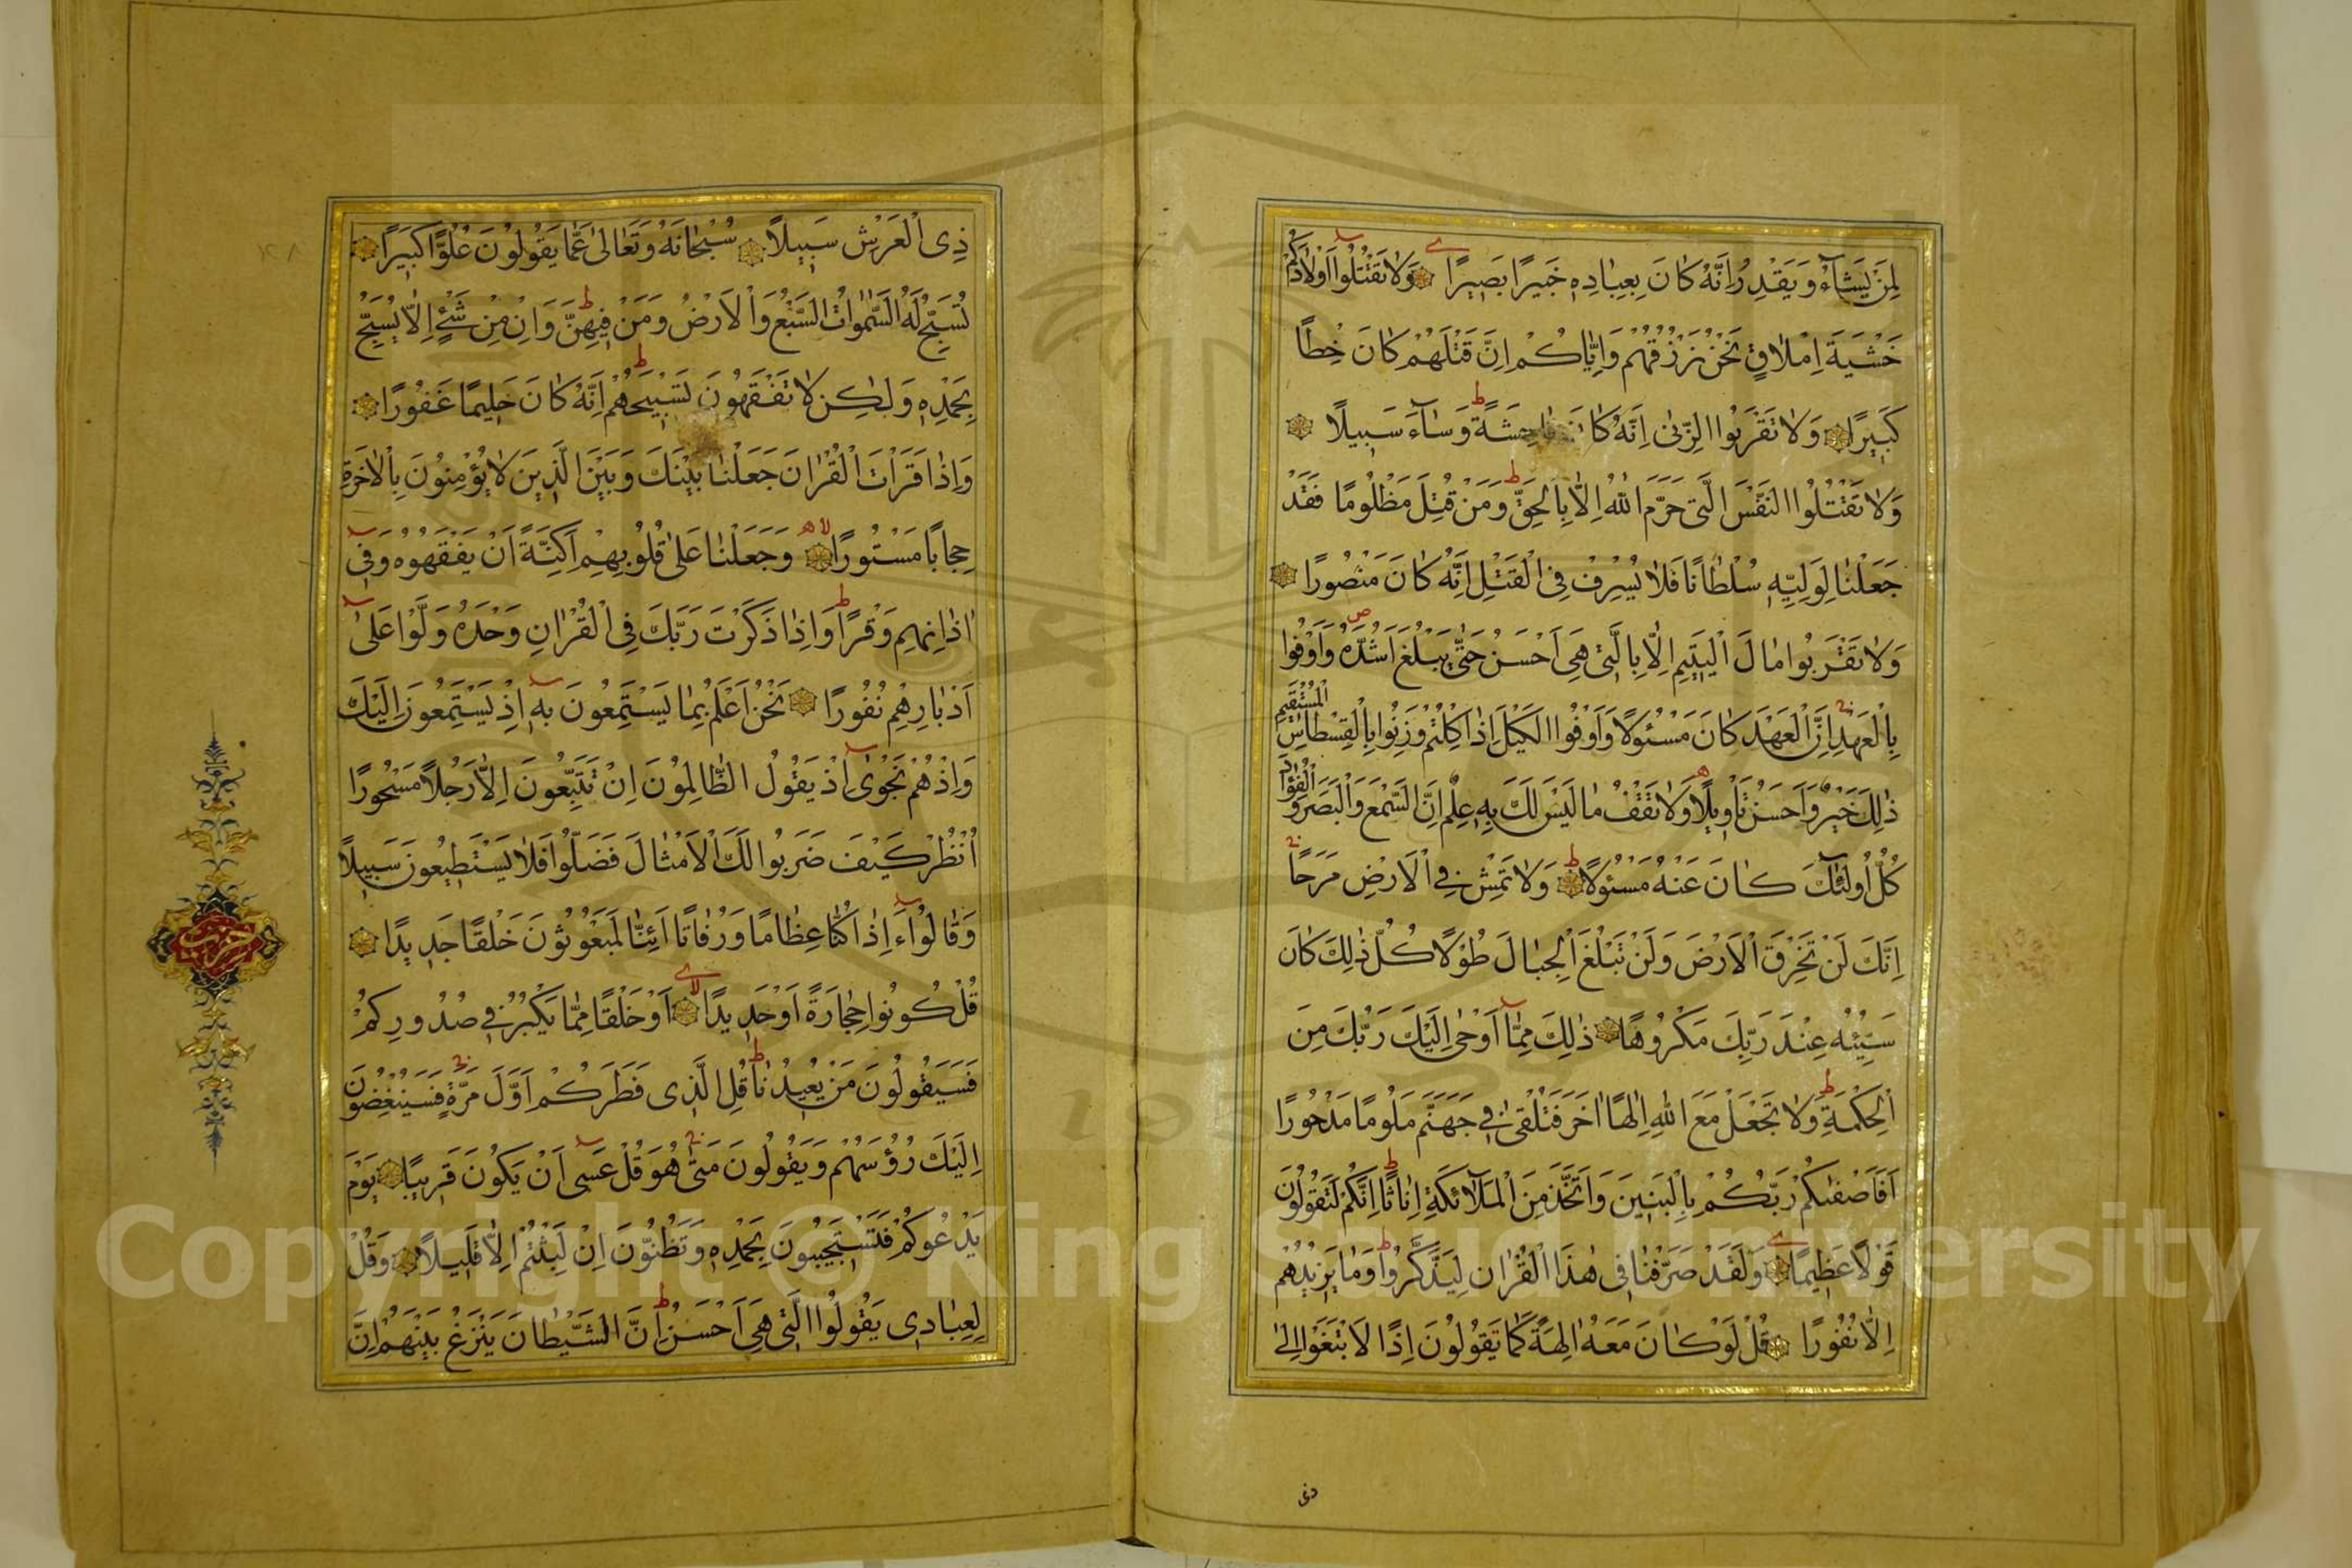 لِمَنْ يَشَآءُ وَيَقْدِرُ اِنَّهُ كَانَ بِعِبَادِهِ خَبِيرًا بَصِيرًا وَلَا تَقْتُلُوا اَوْلَادَكُمْ
خَشْيَةَ اِمْلَاقٍ نَحْنُ نَرْزُقُهُمْ وَاِيَّاكُمْ اِنَّ قَتْلَهُمْ كَانَ خِطًا
كَبِيرًا وَلَا تَقْرَبُوا الزِّنٰى اِنَّهُ كَانَ فَاحِشَةً وَسَآءَ سَبِيلًا
وَلَا تَقْتُلُوا النَّفْسَ الَّتِى حَرَّمَ اللهُ اِلَّا بِالْحَقِّ وَمَنْ قُتِلَ مَظْلُومًا فَقَدْ
جَعَلْنَا لِوَلِيِّهِ سُلْطَانًا فَلَا يُسْرِفْ فِى الْقَتْلِ اِنَّهُ كَانَ مَنْصُورًا
وَلَا تَقْرَبُوا مَالَ الْيَتِيمِ اِلَّا بِالَّتِى هِىَ اَحْسَنُ حَتّٰى يَبْلُغَ اَشُدَّهُ وَاَوْفُوا
بِالْعَهْدِ اِنَّ الْعَهْدَ كَانَ مَسْئُولًا وَاَوْفُوا الْكَيْلَ اِذَا كِلْتُمْ وَزِنُوا بِالْقِسْطَاسِ الْمُسْتَقِيمِ
ذٰلِكَ خَيْرٌ وَاَحْسَنُ تَاْوِيلًا وَلَا تَقْفُ مَا لَيْسَ لَكَ بِهِ عِلْمٌ اِنَّ السَّمْعَ وَالْبَصَرَ وَالْفُؤَادَ
كُلُّ اُولٰٓئِكَ كَانَ عَنْهُ مَسْئُولًا وَلَا تَمْشِ فِى الْاَرْضِ مَرَحًا
اِنَّكَ لَنْ تَخْرِقَ الْاَرْضَ وَلَنْ تَبْلُغَ الْجِبَالَ طُوْلًا كُلُّ ذٰلِكَ كَانَ
سَيِّئُهُ عِنْدَ رَبِّكَ مَكْرُوهًا ذٰلِكَ مِمَّآ اَوْحٰى اِلَيْكَ رَبُّكَ مِنَ
الْحِكْمَةِ وَلَا تَجْعَلْ مَعَ اللهِ اِلٰهًا اٰخَرَ فَتُلْقٰى فِى جَهَنَّمَ مَلُومًا مَدْحُورًا
اَفَاَصْفٰىكُمْ رَبُّكُمْ بِالْبَنِينَ وَاتَّخَذَ مِنَ الْمَلٰٓائِكَةِ اِنَاثًا اِنَّكُمْ لَتَقُولُونَ
قَوْلًا عَظِيمًا وَلَقَدْ صَرَّفْنَا فِى هٰذَا الْقُرْاٰنِ لِيَذَّكَّرُوا وَمَا يَزِيدُهُمْ
اِلَّا نُفُورًا قُلْ لَوْ كَانَ مَعَهُ اٰلِهَةٌ كَمَا تَقُولُونَ اِذًا لَابْتَغَوْا اِلٰى
ذى
ذِى الْعَرْشِ سَبِيلًا سُبْحَانَهُ وَتَعَالٰى عَمَّا يَقُولُونَ عُلُوًّا كَبِيرًا
تُسَبِّحُ لَهُ السَّمٰوَاتُ السَّبْعُ وَالْاَرْضُ وَمَنْ فِيهِنَّ وَاِنْ مِنْ شَىْءٍ اِلَّا يُسَبِّحُ
بِحَمْدِهِ وَلٰكِنْ لَا تَفْقَهُونَ تَسْبِيحَهُمْ اِنَّهُ كَانَ حَلِيمًا غَفُورًا
وَاِذَا قَرَاْتَ الْقُرْاٰنَ جَعَلْنَا بَيْنَكَ وَبَيْنَ الَّذِينَ لَا يُؤْمِنُونَ بِالْاٰخِرَةِ
حِجَابًا مَسْتُورًا وَجَعَلْنَا عَلٰى قُلُوبِهِمْ اَكِنَّةً اَنْ يَفْقَهُوهُ وَفِى
اٰذَانِهِمْ وَقْرًا وَاِذَا ذَكَرْتَ رَبَّكَ فِى الْقُرْاٰنِ وَحْدَهُ وَلَّوْا عَلٰى
اَدْبَارِهِمْ نُفُورًا نَحْنُ اَعْلَمُ بِمَا يَسْتَمِعُونَ بِهِ اِذْ يَسْتَمِعُونَ اِلَيْكَ
وَاِذْ هُمْ نَجْوٰى اِذْ يَقُولُ الظَّالِمُونَ اِنْ تَتَّبِعُونَ اِلَّا رَجُلًا مَسْحُورًا
اُنْظُرْ كَيْفَ ضَرَبُوا لَكَ الْاَمْثَالَ فَضَلُّوا فَلَا يَسْتَطِيعُونَ سَبِيلًا
وَقَالُوٓا ءَاِذَا كُنَّا عِظَامًا وَرُفَاتًا ءَاِنَّا لَمَبْعُوثُونَ خَلْقًا جَدِيدًا
قُلْ كُونُوا حِجَارَةً اَوْ حَدِيدًا اَوْ خَلْقًا مِمَّا يَكْبُرُ فِى صُدُورِكُمْ
فَسَيَقُولُونَ مَنْ يُعِيدُنَا قُلِ الَّذِى فَطَرَكُمْ اَوَّلَ مَرَّةٍ فَسَيُنْغِضُونَ
اِلَيْكَ رُؤُسَهُمْ وَيَقُولُونَ مَتٰى هُوَ قُلْ عَسٰى اَنْ يَكُونَ قَرِيبًا يَوْمَ
يَدْعُوكُمْ فَتَسْتَجِيبُونَ بِحَمْدِهِ وَتَظُنُّونَ اِنْ لَبِثْتُمْ اِلَّا قَلِيلًا وَقُلْ
لِعِبَادِى يَقُولُوا الَّتِى هِىَ اَحْسَنُ اِنَّ الشَّيْطَانَ يَنْزَغُ بَيْنَهُمْ اِنَّ
حزب
Copyright © King Saud University